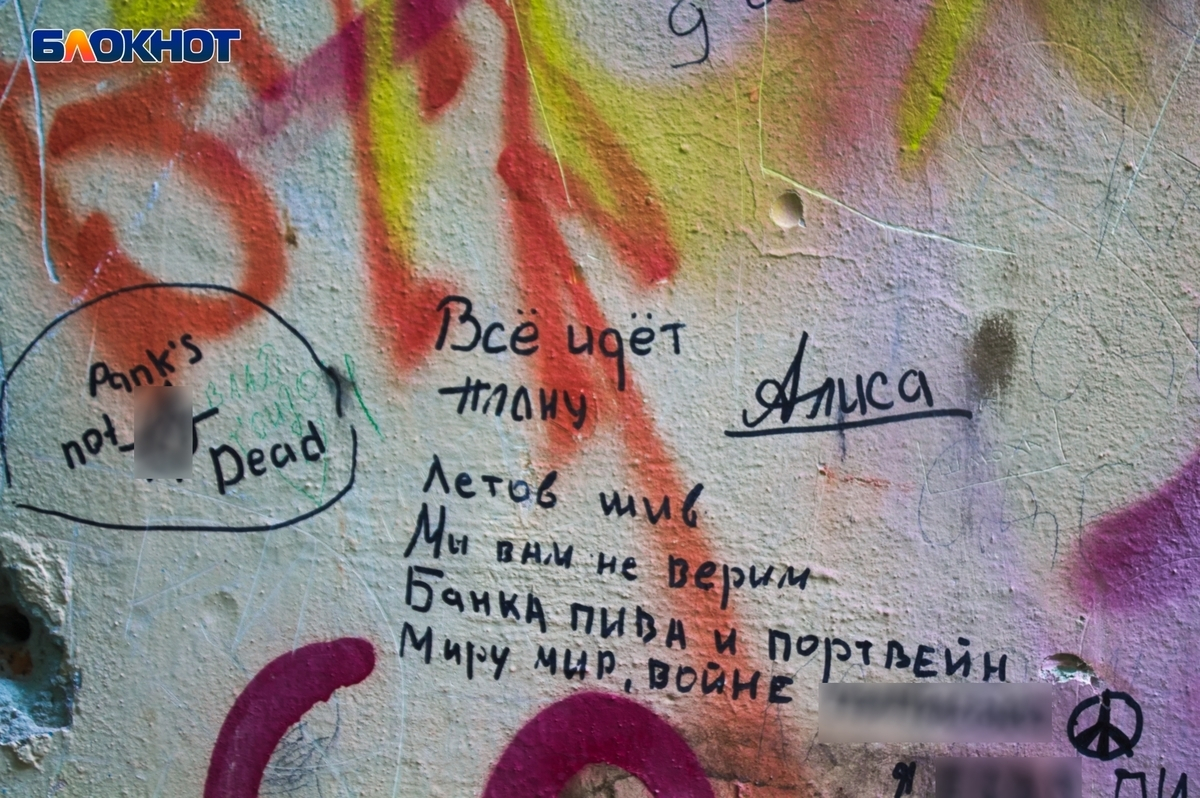 БЛОКНОТ
Pank's
not
Dead
Всё идёт
плану
Алиса
Летов жив
Мы вам не верим
Банка пива и портвейн
Миру мир, войне
Я